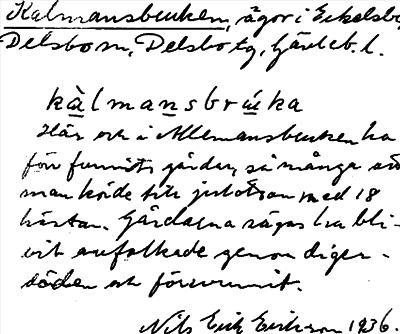 Kalmansbruken, ägor i Eckelsby,
Delsbo sn, Delsbo tg, Gävleb. l.
kàlmansbrúka
Här och i Allemansbruken ha
förr funnits gårdar, så många att
man körde till julottan med 18
hästar. Gårdarna sägas ha bli-
vit avfolkade genom diger-
döden och försvunnit.
Nils Erik Eriksson 1936.